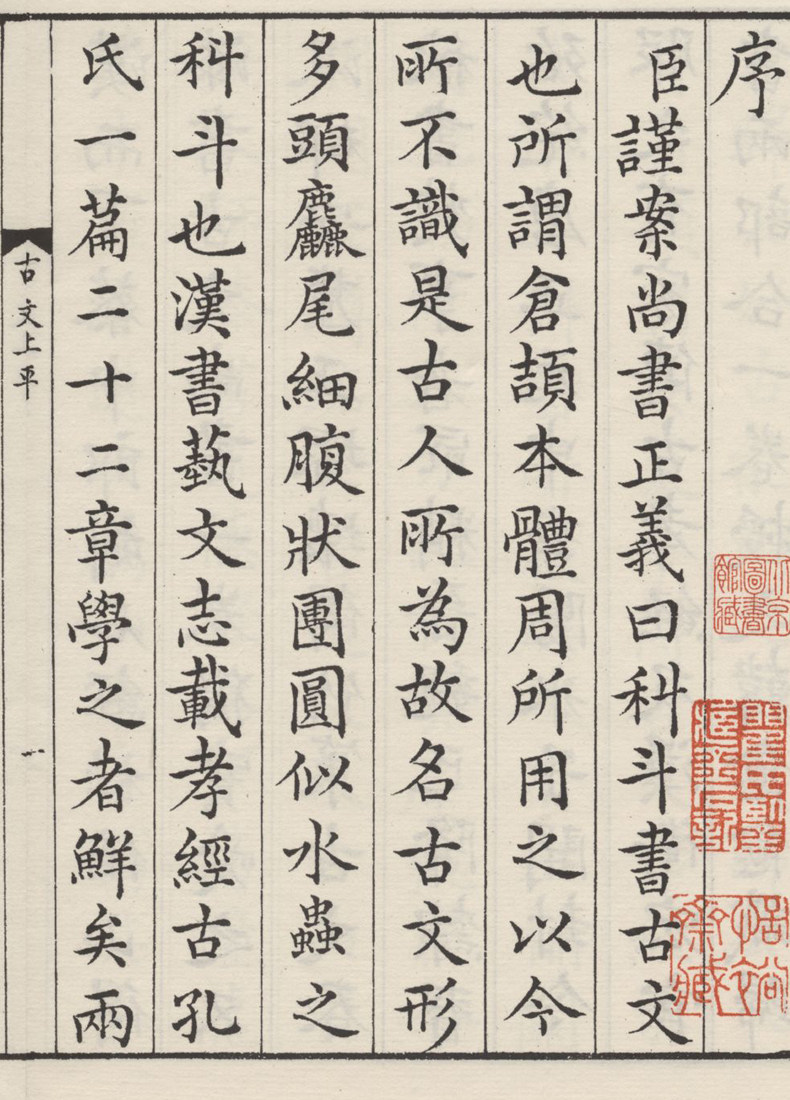 序
臣謹案尚書正義曰科斗書古文
也所謂倉頡本體周所用之以今
所不識是古人所為故名古文形
多頭麤尾細腹狀團圓似水蟲之
科斗也漢書藝文志載孝經古孔
氏一篇二十二章學之者鮮矣兩
古文上平
一
北京圖書館藏